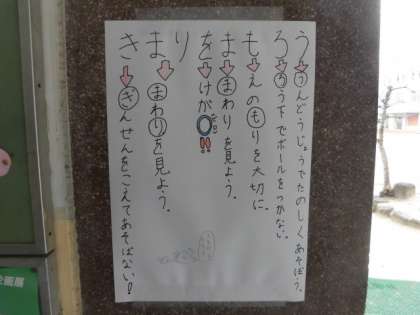 きまりをまもろう
うんどうじょうでたのしくあそぼう。
ろう下でボールをつかない。
えのもりを大切に。
まわりを見よう。
けが0!!
まわりを見よう。
ぎんせんをこえてあそばない!
企画展